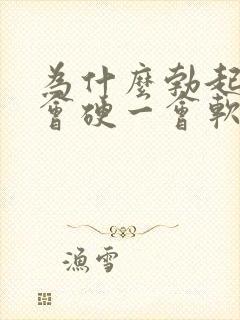 為什麼勃起
會硬一會軟
漁雪